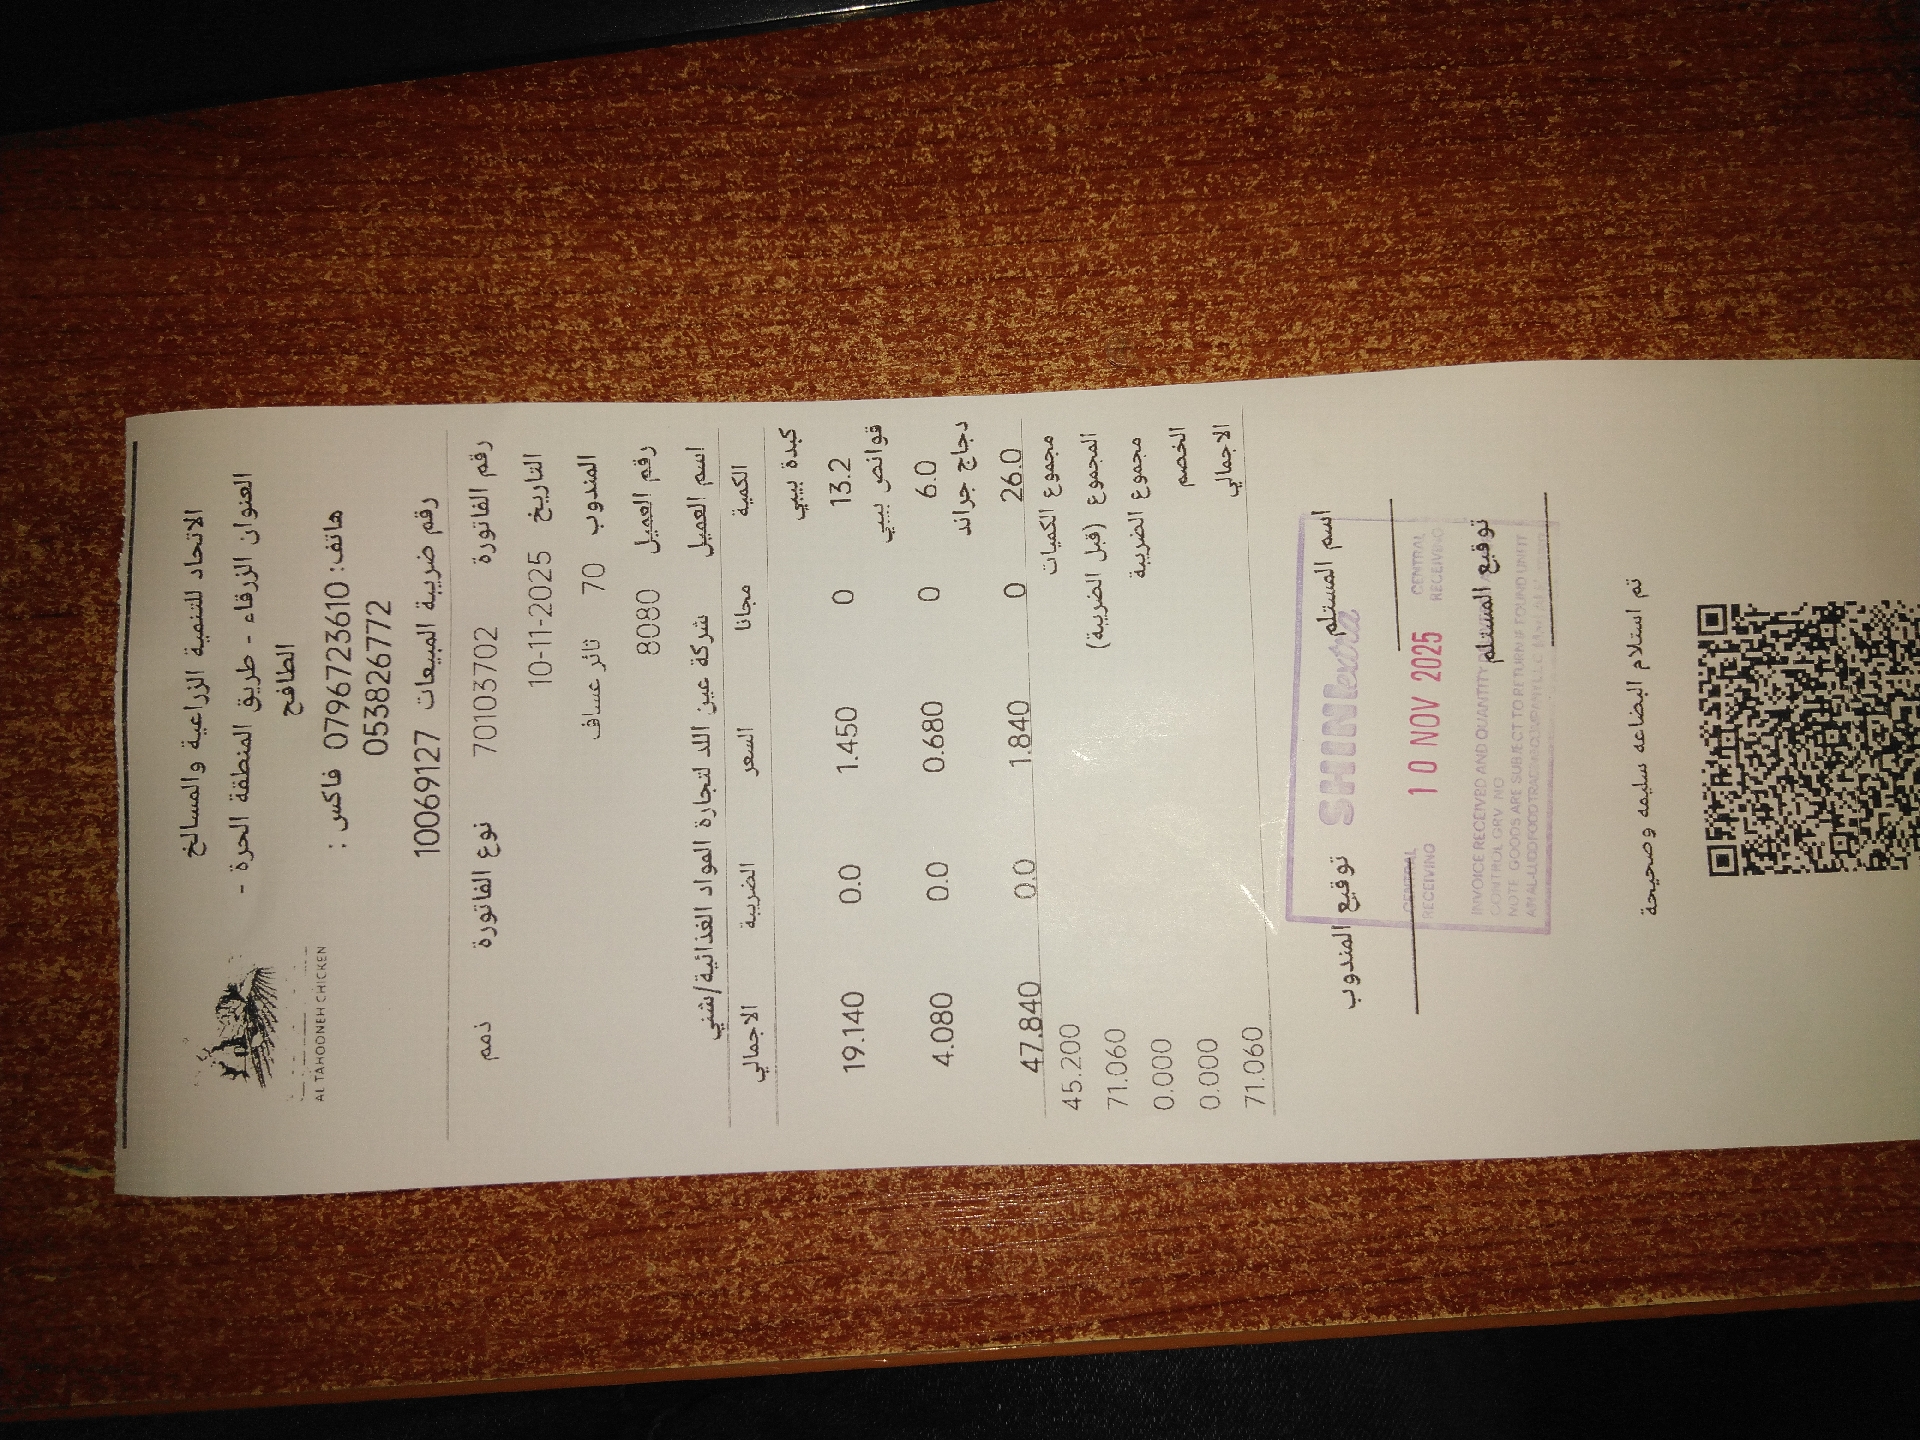 الاتحاد للتنمية الزراعية والمسالخ
العنوان الزرقاء - طريق المنطقة الحرة -
الطافح
AL TAHOONEH CHICKEN
هاتف: 0796723610 فاكس :
053826772
رقم ضريبة المبيعات 10069127
رقم الفاتورة 70103702 نوع الفاتورة ذمم
التاريخ 10-11-2025
المندوب 70 ثائر عساف
رقم العميل 8080
اسم العميل شركة عين اللد لتجارة المواد الغذائية/شني
الكمية مجانا السعر الضريبة الاجمالي
كبدة بيبي
13.2 0 1.450 0.0 19.140
قوانص بيبي
6.0 0 0.680 0.0 4.080
دجاج جراند
26.0 0 1.840 0.0 47.840
مجموع الكميات 45.200
المجموع (قبل الضريبة) 71.060
مجموع الضريبة 0.000
الخصم 0.000
الاجمالي 71.060
اسم المستلم توقيع المندوب
SHINI extra
CENTRAL RECEIVING 10 NOV 2025 CENTRAL RECEIVING
توقيع المستلم
INVOICE RECEIVED AND QUANTITY
CONTROL GRV NO
NOTE GOODS ARE SUBJECT TO RETURN IF FOUND UNFIT
تم استلام البضاعه سليمه وصحيحة